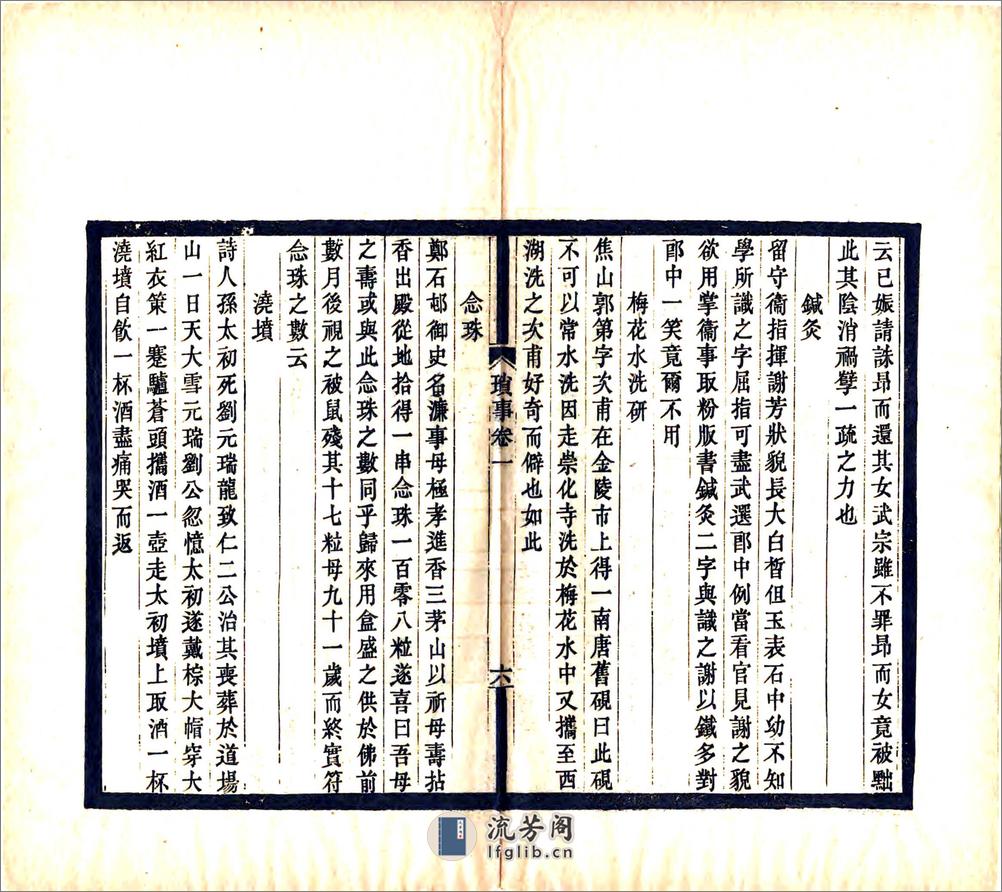 云已娠請誅昂而還其女武宗雖不罪昂而女竟被黜
此其陰消禍孽一疏之力也
鍼灸
留守衞指揮謝芳狀貌長大白皙但玉表石中幼不知
學所識之字屈指可盡武選郎中例當看官見謝之貌
欲用掌衞事取粉版書鍼灸二字與識之謝以鐵多對
郎中一笑竟爾不用
梅花水洗研
焦山郭第字次甫在金陵市上得一南唐舊硯曰此硯
不可以常水洗因走崇化寺洗於梅花水中又攜至西
湖洗之次甫好奇而僻也如此
瑣事卷一
六
念珠
鄭石邨御史名濂事母極孝進香三茅山以祈母壽拈
香出殿從地拾得一串念珠一百零八粒遂喜曰吾母
之壽或與此念珠之數同乎歸來用盒盛之供於佛前
數月後視之被鼠殘其十七粒母九十一歲而終實符
念珠之數云
澆墳
詩人孫太初死劉元瑞龍致仁二公治其喪葬於道場
山一日天大雪元瑞劉公忽憶太初遂戴棕大帽穿大
紅衣策一蹇驢蒼頭攜酒一壺走太初墳上取酒一杯
澆墳自飲一杯酒盡痛哭而返
流芳阁
lfglib.cn